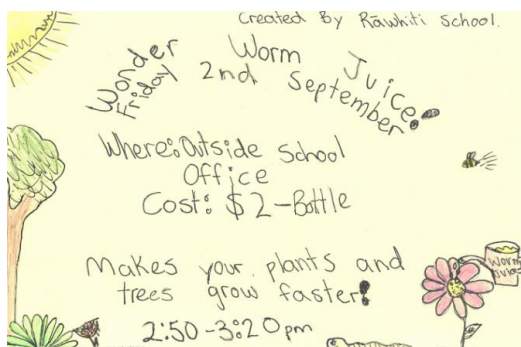 Created By Rāwhiti School.
Wonder Worm Juice!
Friday 2nd September!
Where: Outside School
Office
Cost: $2 - Bottle
Makes your plants and
trees grow faster!
2:50 - 3:20 pm
Worm
Juice